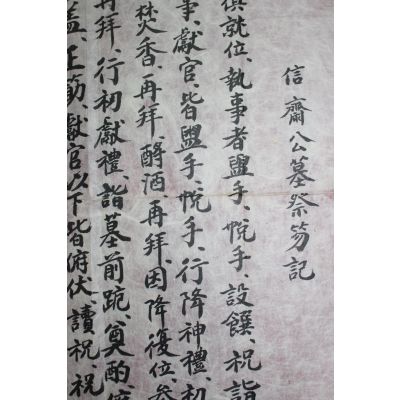 信齋公墓祭笏記
俱就位、執事者盥手、帨手、設饌、祝詣
事、獻官、皆盥手、帨手、行降神禮、初
焚香、再拜、酹酒再拜、因降復位、參
再拜、行初獻禮、詣墓前跪、奠酌、
盖、正筯、獻官以下皆俯伏、讀祝、祝